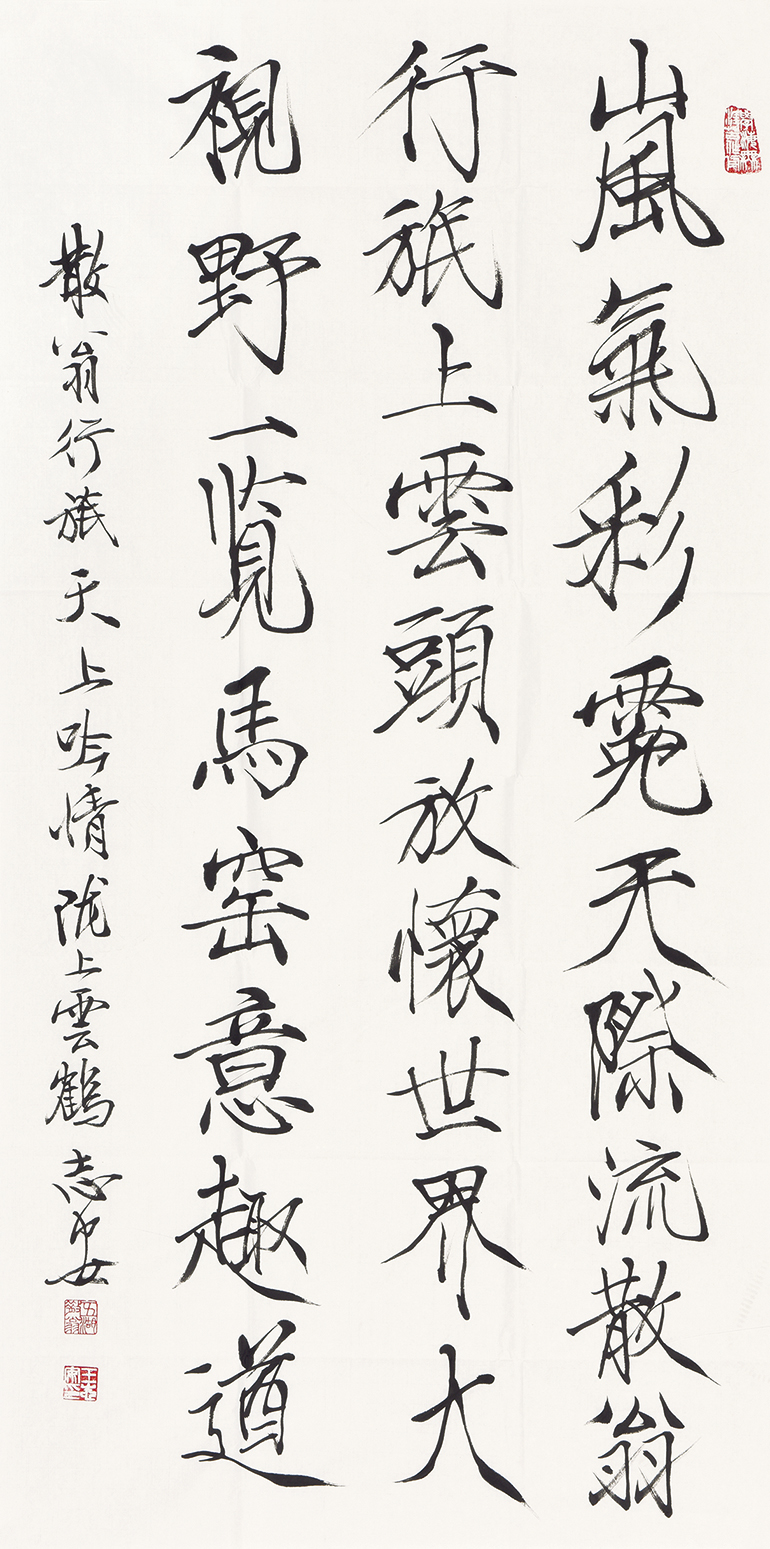 嵐氣彩霓天際流散翁
行旅上雲頭放懷世界大
視野一覽馬窑意趣遒
散翁行旅天上吟情陇上雲鶴志
五湖散翁